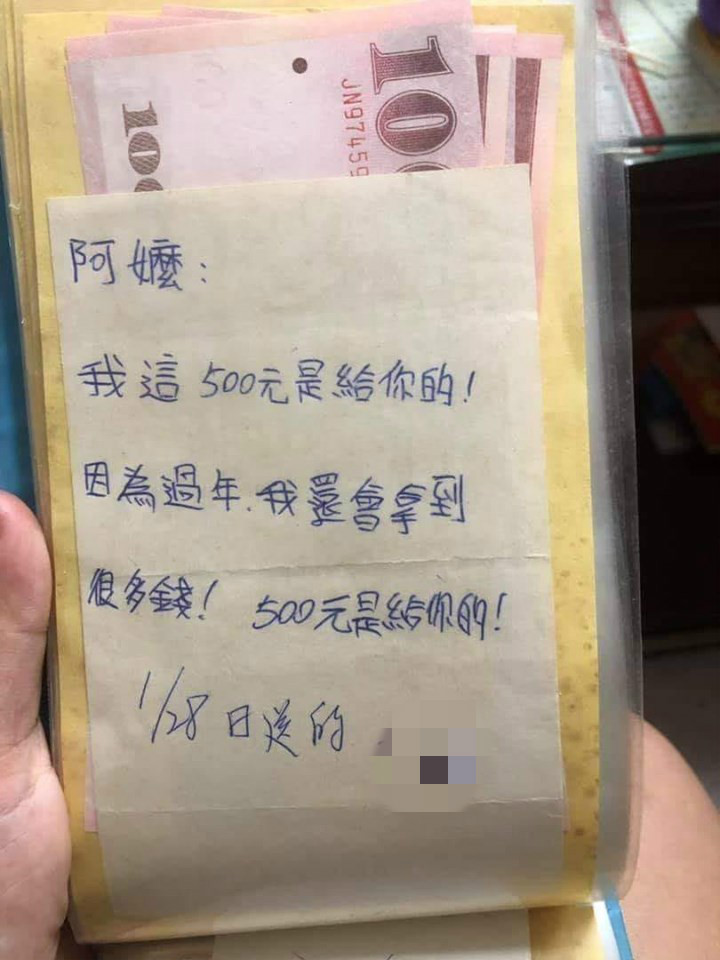 100
JN97459
100
阿嬤：
我這500元是給你的！
因為過年．我還會拿到
很多錢！ 500元是給你的！
1/28日送的